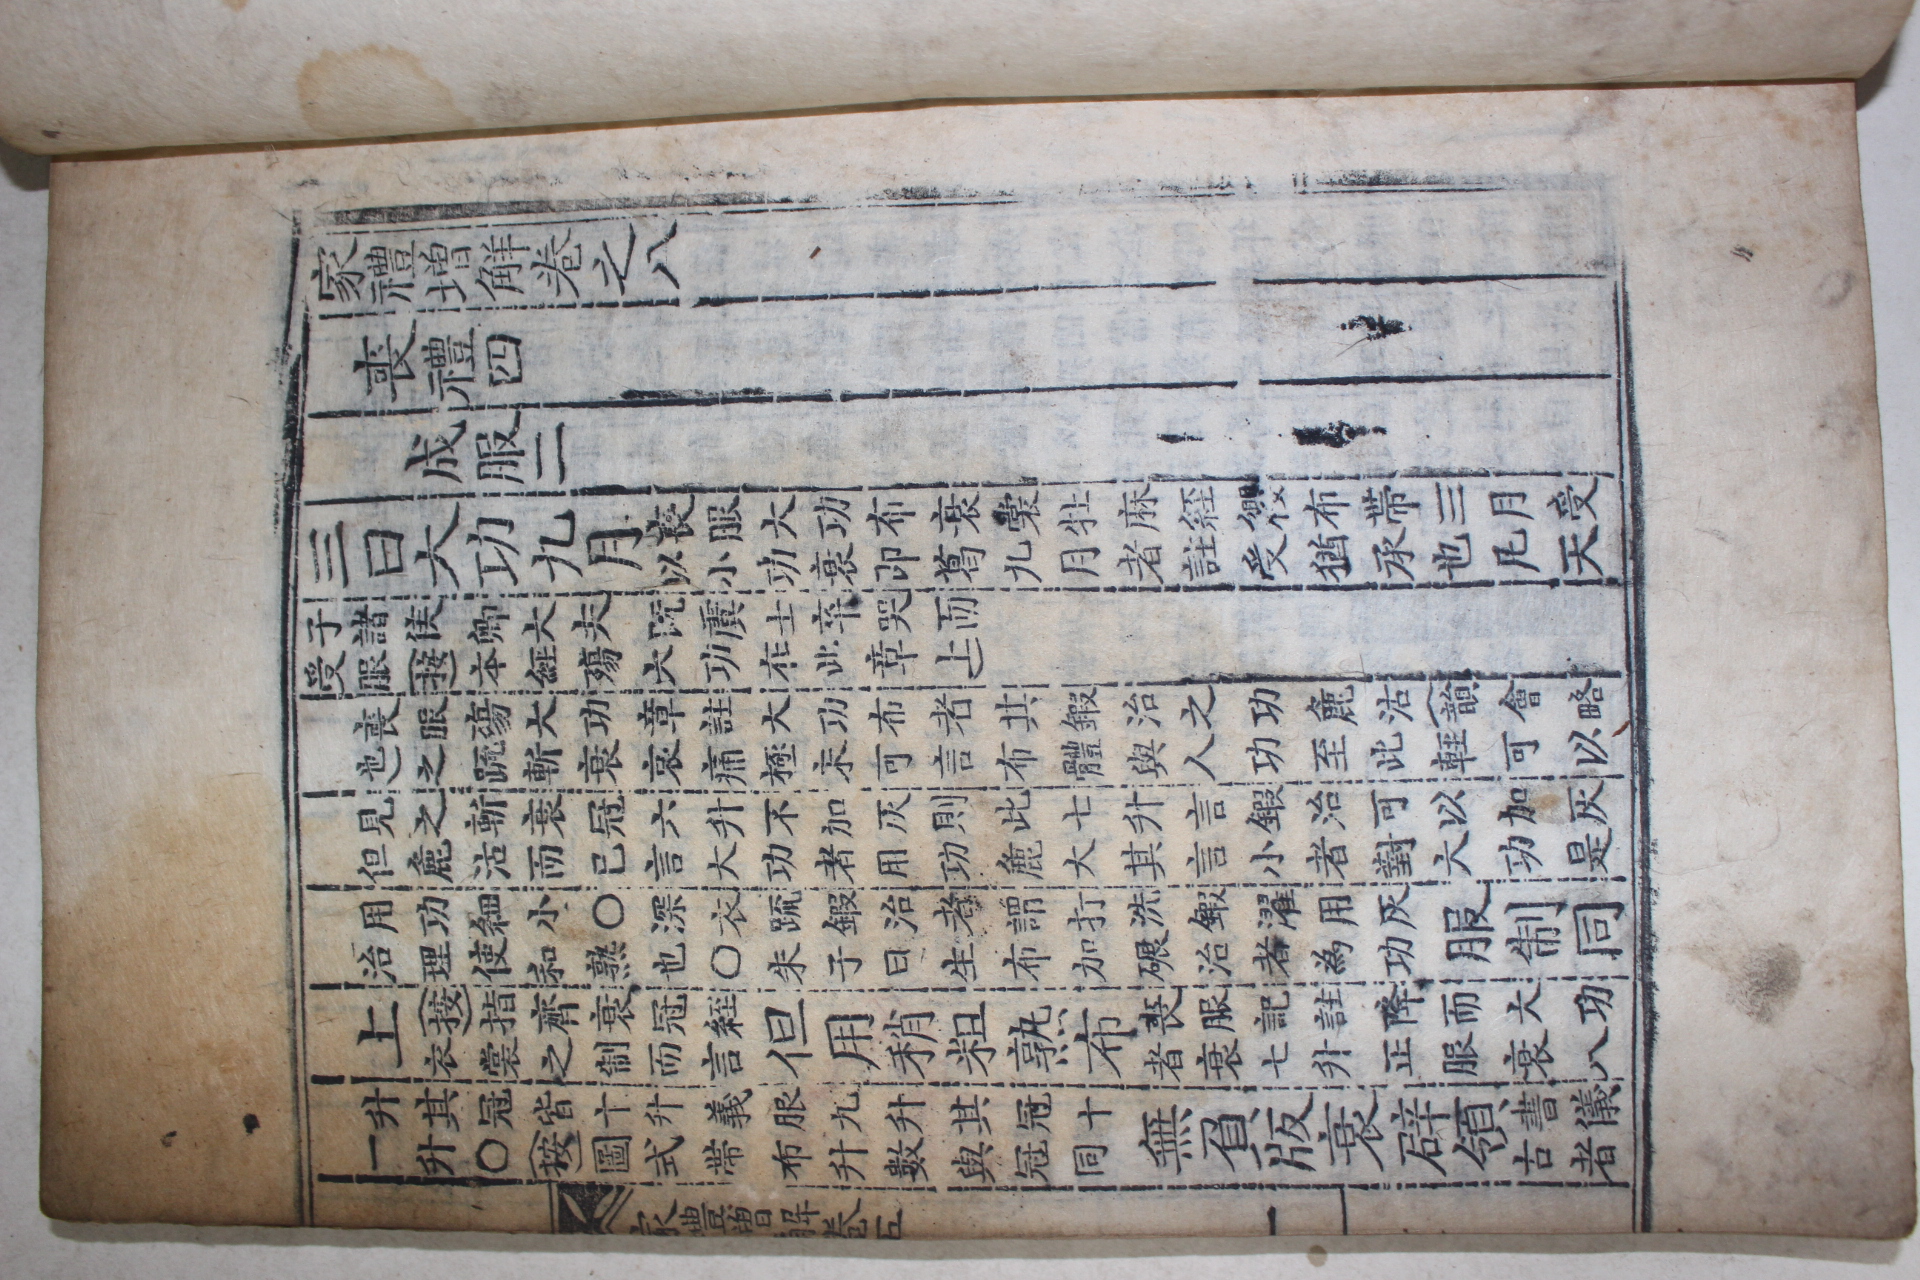 家禮增解卷之八
喪禮四
成服二
三曰大功九月喪服大功布衰裳牡麻絰纓布帶三月受
以小功衰卽葛九月者註受猶承也凡天
子諸侯卿大夫旣虞士卒哭而
受服(按)本經殤大功在此章上)
喪服殤大功章註大功布者其鍛治之功麁沽(韻會略
也)之疏斬衰哀痛極未可言布體與人功至此輕可以
見之斬衰冠六升不加灰則此七升言鍛治可以加灰
但麁沽而已言大功者用功麁大其言小者對大功是
用功細小○深衣疏鍛治者謂打洗鍛濯用灰
治理使和熟也○朱子曰生布加碾治者為功
服制同
上(按)指齊衰冠絰
衣裳之制而言
但用稍粗熟布喪服記註降而大功
者衰七升正服衰八
升其冠皆十升義服九升其冠十
一升○(按)圖式帶布升數與冠同
無負版衰辟領書儀
古者
家禮增解卷五
一